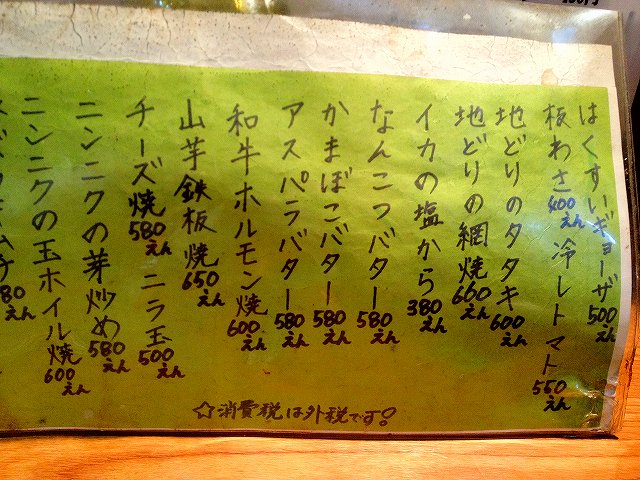 はくすいギョーザ 500えん
板わさ 400えん 冷しトマト 550えん
地どりのタタキ 600えん
地どりの網焼 660えん
イカの塩から 380えん
なんこつバター 580えん
かまぼこバター 580えん
アスパラバター 580えん
和牛ホルモン焼 600えん
山芋鉄板焼 650えん
チーズ焼 580えん ニラ玉 500えん
ニンニクの芽炒め 580えん
ニンニクの玉ホイル焼 600えん
☆消費税は外税です!